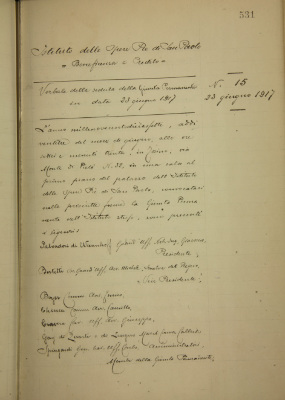 531
Istituto delle Opere Pie di San Paolo
Beneficenza e Credito
Verbale della seduta della Giunta Permanente
in data 23 giugno 1917
N. 15
23 giugno 1917
L'anno millenovecentodiciassette, addì
ventitre del mese di giugno, alle ore
e minuti trenta, in Torino, via
Monte di Pietà N. 32, in una sala al
primo piano del palazzo dell'Istituto
delle Opere Pie di San Paolo, convocatasi
nelle prescritte forme la Giunta Perma
nente dell'Istituto stesso, sono presenti
i signori:
Salvadori di Wiesenhof Grand' Uff. Giacomo,
Presidente;
Grand' Uff. Avv.
Vice Presidente;
Comm. Avv.
Comm. Avv. Camillo,
Uff. Avv. Giuseppe,
di
Cav. Uff. Carlo Amministratori,
Membri della Giunta Permanente;